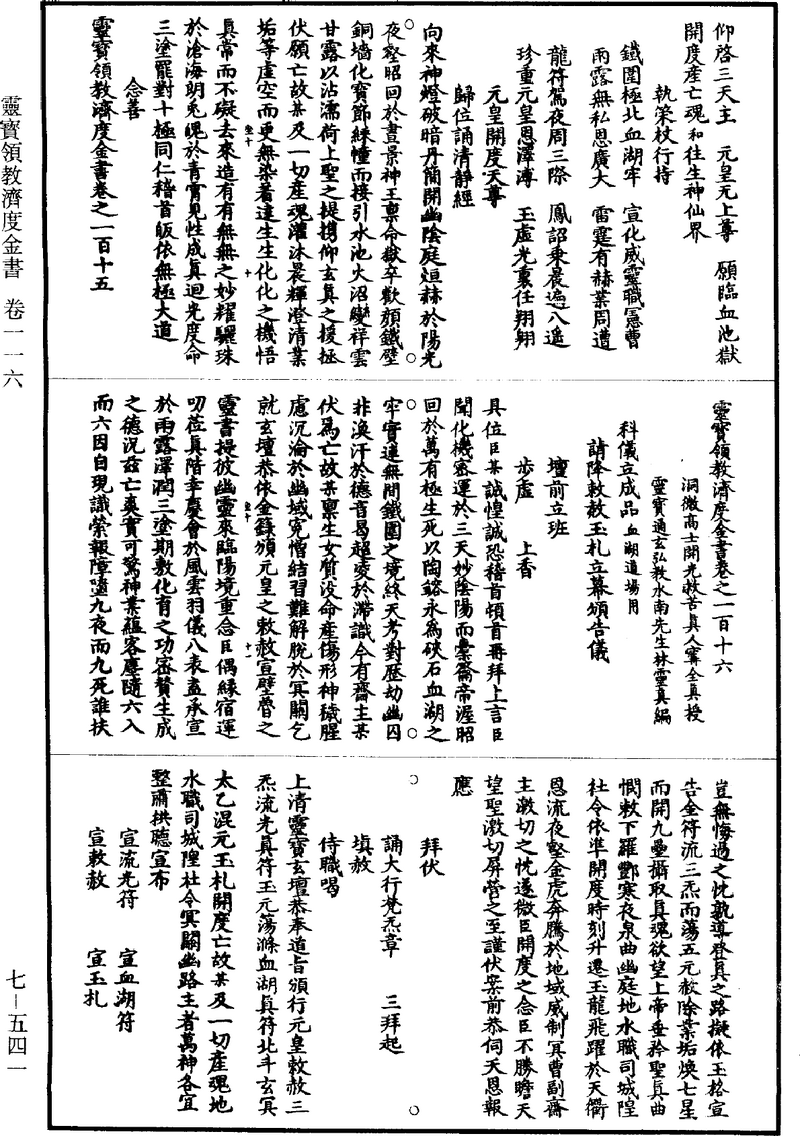 仰啓三天王　元皇元上尊　願臨血池獄
開度產亡魂和往生神仙界
執策杖行持
鐵圍極北血湖牢　宣化威靈職憲曹
雨露無私恩廣大　雷霆有赫業周遭
龍符駕夜周三際　鳳詔乘晨遍八遥
珍重元皇恩澤溥　玉虛光裏任翔翔
元皇開度天尊
歸位誦清靜經
向來神燈破暗丹簡開幽陰庭烜赫於陽光
夜壑昭回於晝景神王禀命獄卒歡顏鐵壁
銅墻化寶節綵幢而接引水池火沼變祥雲
甘露以沾濡荷上聖之提携仰玄真之援拯
伏願亡故某及一切產魂濯沐晨輝澄清業
垢等虛空而更無染着達生生化化之機悟
真常而不礙去來造有有無無之妙耀驪珠
於滄海朗兎魄於青霄見性成真迴光度命
三塗罷對十極同仁稽首皈依無極大道
念善
靈寶領教濟度金書卷之一百十五
靈寶領教濟度金書卷之一百十六
洞微高士開光救苦真人甯全真授
靈寶通玄弘教水南先生林靈真編
科儀立成品血湖道場用
請降敕赦玉札立幕頒告儀
壇前立班
步虛　上香
具位臣某誠惶誠恐稽首頓首再拜上言臣
聞化機密運於三天妙陰陽而橐籥帝渥昭
回於萬有極生死以陶鎔永為硤石血湖之
牢實連無間鐵圍之境終天考對歷劫幽囚
非渙汗於德音曷超凌於滯識今有齋主某
伏為亡故某禀生女質没命產傷形神穢腥
慮沉淪於幽域寃憎結習難解脫於冥關乞
就玄壇恭依金籙頒元皇之敕赦宣壁魯之
靈書提彼幽靈來臨陽境重念臣偶緣宿運
叨莅真階幸慶會於風雲羽儀八表盍承宣
於雨露澤潤三塗期敷化育之功密贊生成
之德況兹亡爽實可驚神業蘊客塵隨六入
而六因自現識縈報障墮九夜而九死誰扶
豈無悔過之忱孰導登真之路擬依玉格宣
告金符流三炁而蕩五元赦除業垢煥七星
而開九壘攝取真魂欲望上帝垂矜聖真曲
憫敕下羅酆寒夜泉曲幽庭地水職司城隍
社令依準開度時刻升遷玉龍飛躍於天衢
恩流夜壑金虎奔騰於地域威制冥曹副齋
主激切之忱遂微臣開度之念臣不勝瞻天
望聖激切屏營之至謹伏案前恭伺天恩報
應
拜伏
誦大行梵炁章　三拜起
填赦
侍職唱
上清靈寶玄壇恭奉道旨頒行元皇敕赦三
炁流光真符玉元蕩滌血湖真符北斗玄冥
太乙混元玉札開度亡故某及一切產魂地
水職司城隍社令冥關幽路主者萬神各宜
整肅拱聽宣布
宣流光符　宣血湖符
宣敕赦　宣玉札
靈寶領教濟度金書　卷一一六
七－五四一